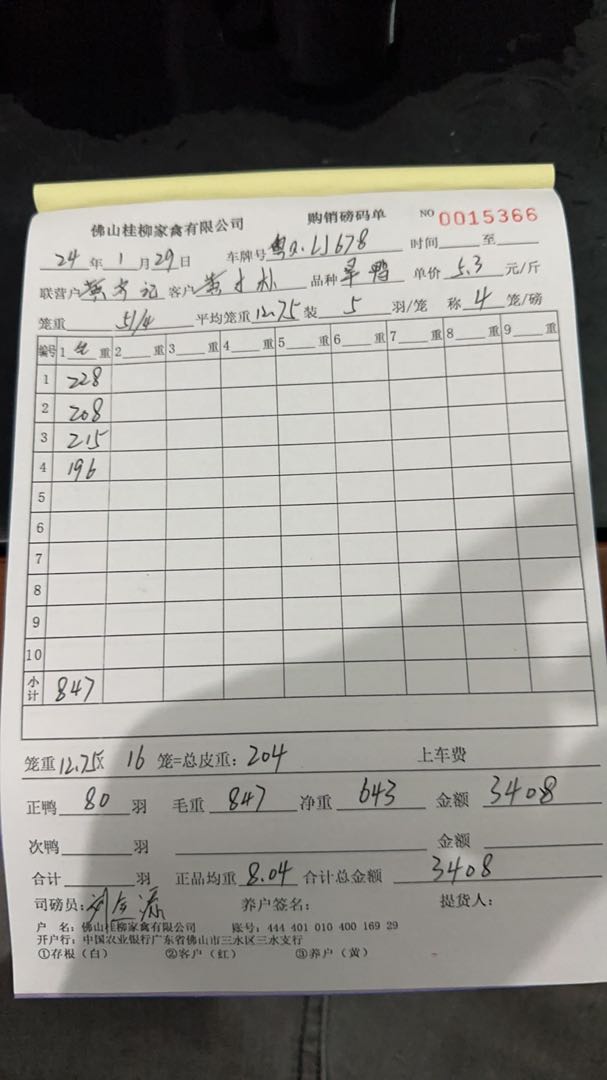 佛山桂柳家禽有限公司 购销磅码单 NO 0015366
24 年 1 月 29 日 车牌号 粤Q.LJ678 时间 至
联营户 客户 品种 单价 5.3 元/斤
笼重 51/4 平均笼重 12.75 装 5 羽/笼 称 4 笼/磅
编号 1 重 2 重 3 重 4 重 5 重 6 重 7 重 8 重 9 重
1 228
2 208
3 215
4 196
5
6
7
8
9
10
小计 847
笼重 12.75x 16 笼=总皮重: 204 上车费
正鸭 80 羽 毛重 847 净重 643 金额 3408
次鸭 羽 金额
合计 羽 正品均重 8.04 合计总金额 3408
司磅员: 养户签名: 提货人:
户 名: 佛山桂柳家禽有限公司 账号: 444 401 010 400 169 29
开户行: 中国农业银行广东省佛山市三水区三水支行
①存根(白) ②客户(红) ③养户(黄)